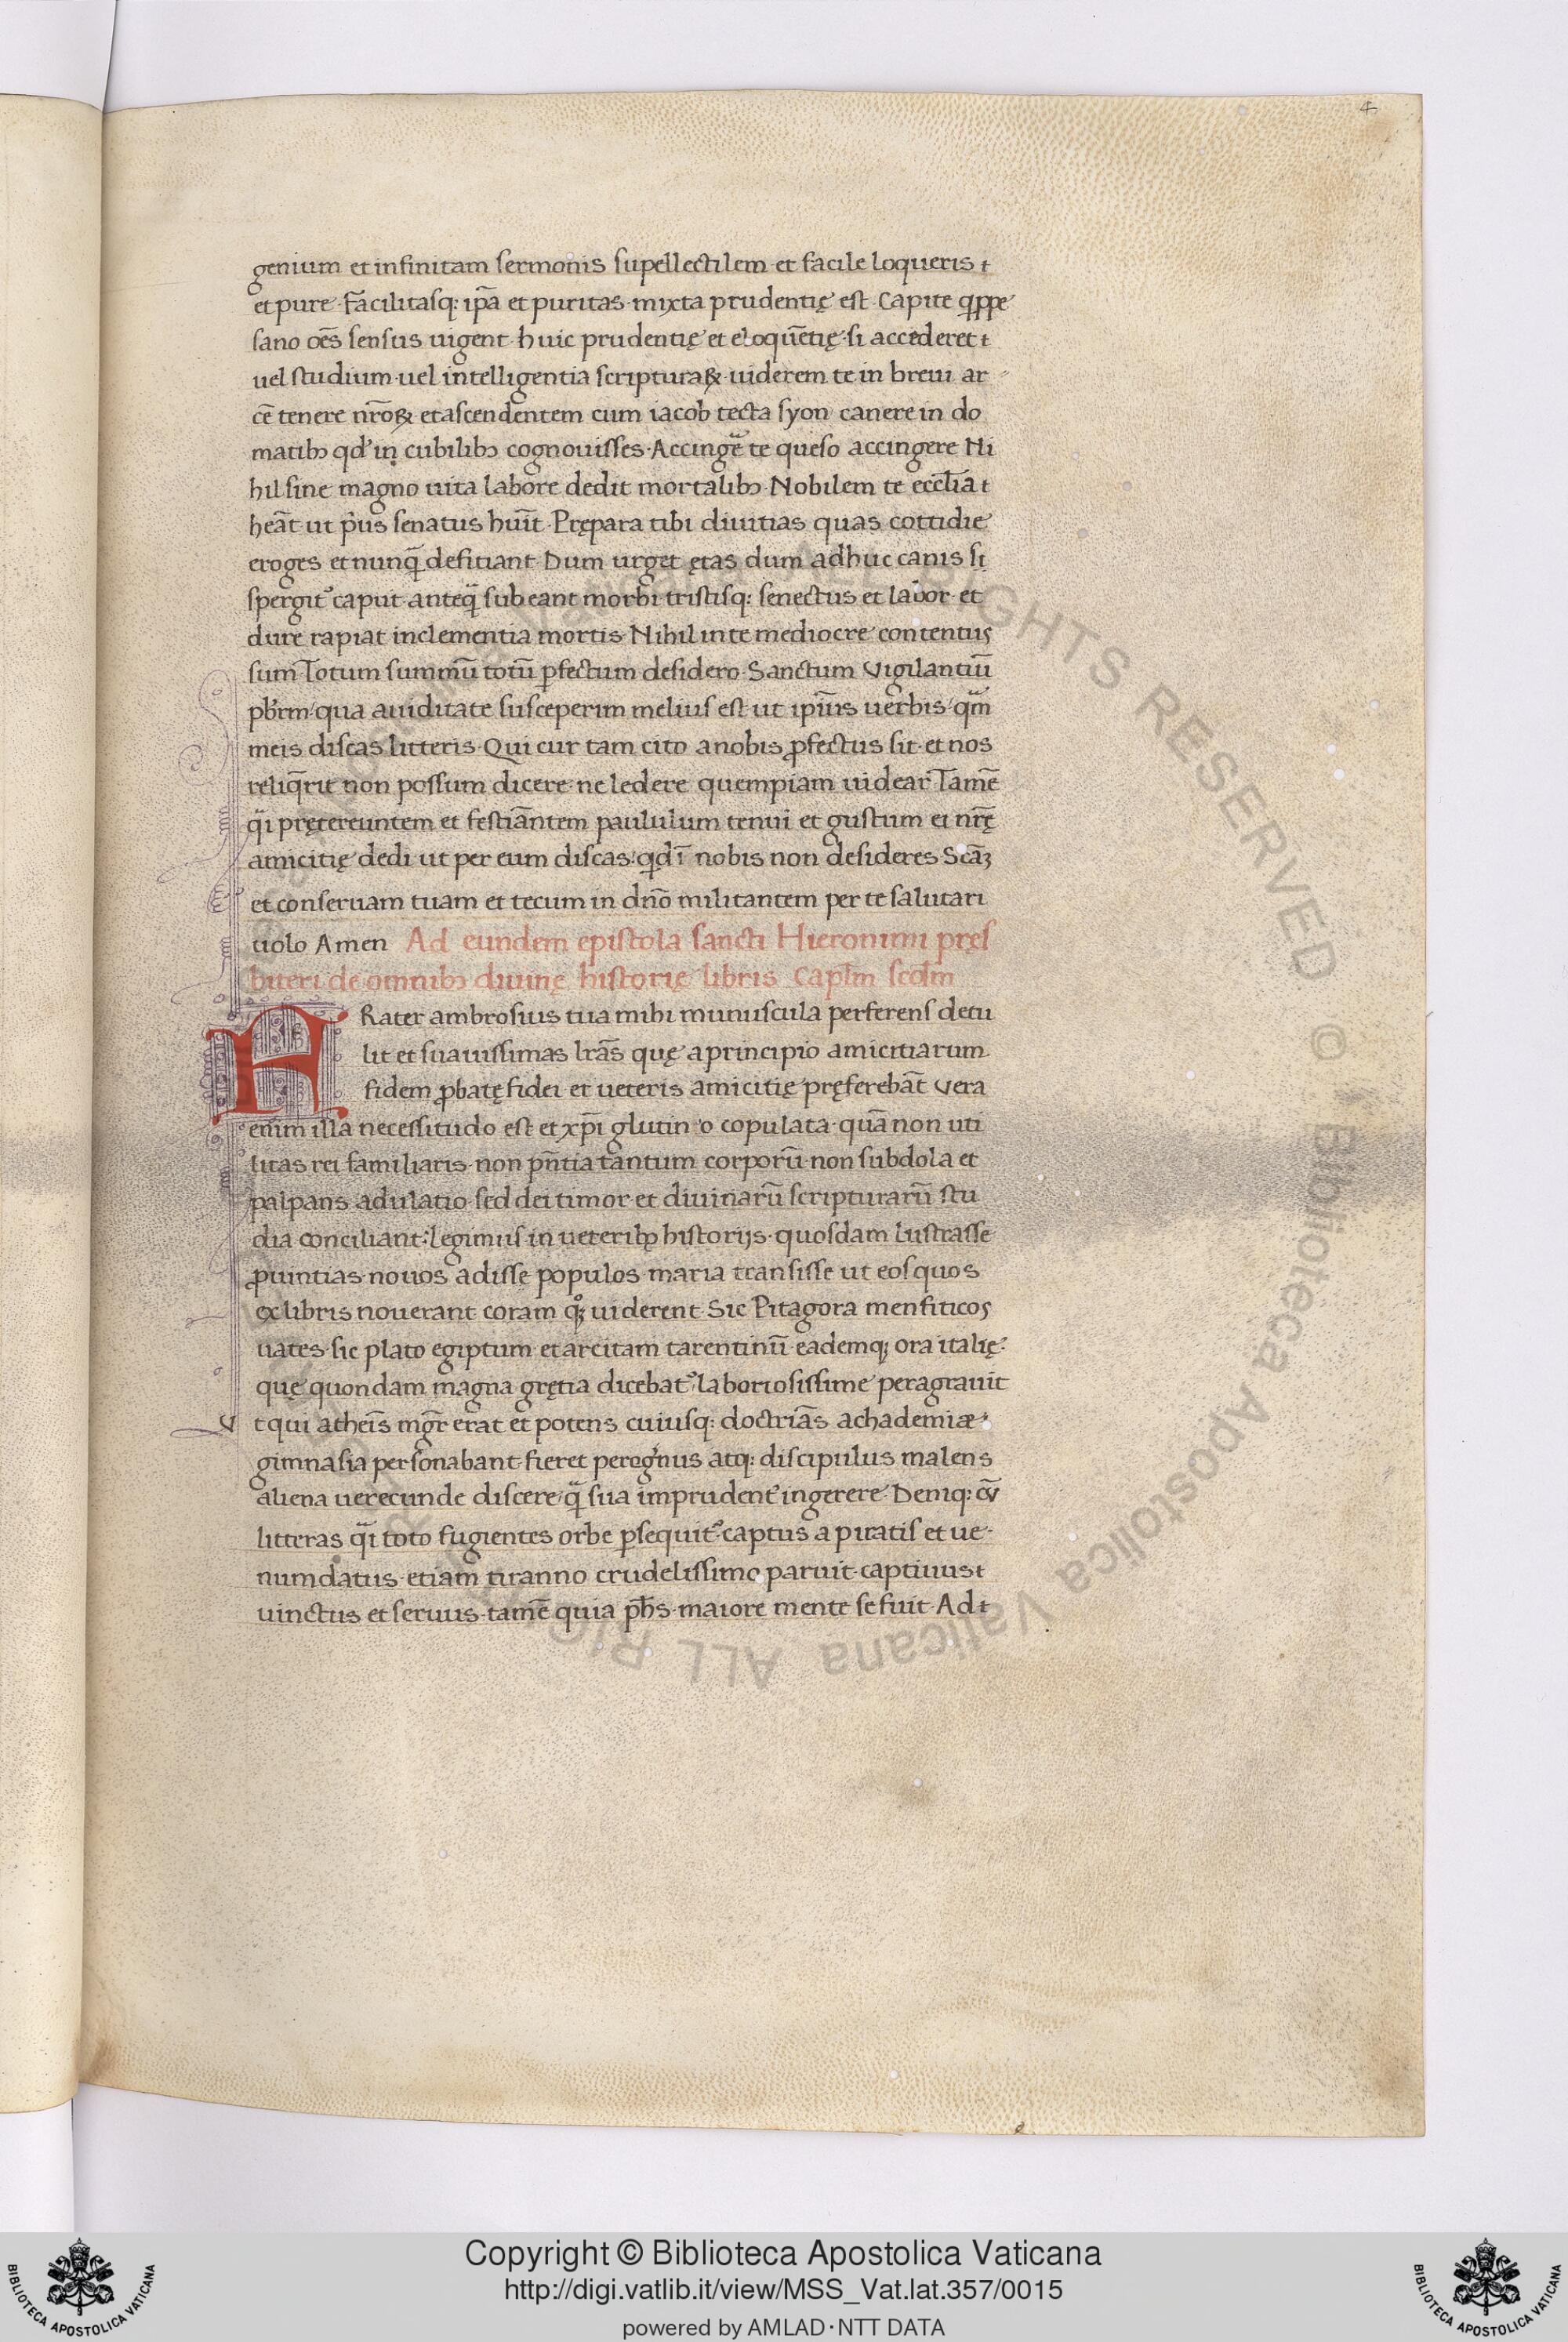 4
genium et infinitam sermonis supellectilem et facile loqueris
et pure · Facilitasq: ip̄a et puritas · mixta prudentię est · Capite q̇ppe
sano oēs sensus uigent · huic prudentię et eloquētię · si accederet
uel studium · uel intelligentia scripturaꝝ · uiderem te in breui ar
cē tenere nr̄oꝝ · et ascendentem cum iacob tecta syon canere in do
matibꝫ qd̓ in cubilibꝫ cognouisses · Accingē te queso accingere Ni
hil sine magno uita labore dedit mortalibꝫ · Nobilem te eccl̄ia
heāt ut p̓us senatus huīt · Prępara tibi diuitias quas cottidie
eroges et nunq̄ defitiant · Dum urget ętas dum adhuc canis si
spergit᷒ caput · anteq̄ subeant morbi tristisq: senectus et labor · et
dure rapiat inclementia mortis · Nihil in te mediocre contentus
sum Totum summū totū ꝑfectum desidero · Sanctum Vigilantiū
pb̄rm · qua auiditate susceperim melius est ut ip̄ius uerbis · qm̄
meis discas litteris · Qui cur tam cito a nobis ꝓfectus sit · et nos
reliq̄rit non possum dicere · ne ledere quempiam uidear̄ Tamē
q̄i pręteręuntem et festiāntem paululum tenui et gustum ei nr̄ę
amicitię dedi ut per eum discas · qd̓ ī nobis non desideres Scāꝫ
et conseruam tuam et tecum in dn̄o militantem per te salutari
uolo Amen Ad eundem epistola sancti Hieronimi pręs
biteri de omnibꝫ diuinę historię libris Capl̄m scol̄m
FRater ambrosius tua mihi munuscula perferens detu
lit et suauissimas lrās quę a principio amicitiarum
fidem ꝓbatę fidei et ueteris amicitię pręferebāt Vera
enim illa necessitudo est et xp̄i glutin o copulata · quā non uti
litas rei familiaris · non pn̄tia tantum corporū · non subdola et
palpans adulatio · sed dei timor · et diuinarū scripturarū stu
dia conciliant : legimus in ueteribꝫ historijs · quosdam lustrasse
ꝓuintias · nouos adisse populos · maria transisse ut eos quos
ex libris nouerant coram qꝫ uiderent · Sic Pitagora menfiticos
uates · sic plato egiptum · et arcitam tarentinū · eademqꝫ ora italię ·
quę quondam magna gretia dicebat᷒ laboriosissime peragrauit
V t qui atheīs mgr̄ erat et potens cuiusq: doctriās achademiæ
gimnasia personabant · fieret peregr̓nus atq: discipulus malens
aliena uerecunde discere · q̄ sua imprudent̄ ingerere · Deniq: cū
litteras q̄i toto fugientes orbe ꝑsequit᷒ captus a piratis et ue-
numdatus · etiam tiranno crudelissimo paruit · captiuus
uinctus et seruus · tamē quia ph̄s · maiore mente se fuit · Ad
Copyright © Biblioteca Apostolica Vaticana
http://digi.vatlib.it/view/MSS_Vat.lat.357/0015
powered by AMLAD·NTT DATA
BIBLIOTECA APOSTOLICA VATICANA
BIBLIOTECA APOSTOLICA VATICANA
© Biblioteca Apostolica Vaticana ALL RIGHTS RESERVED